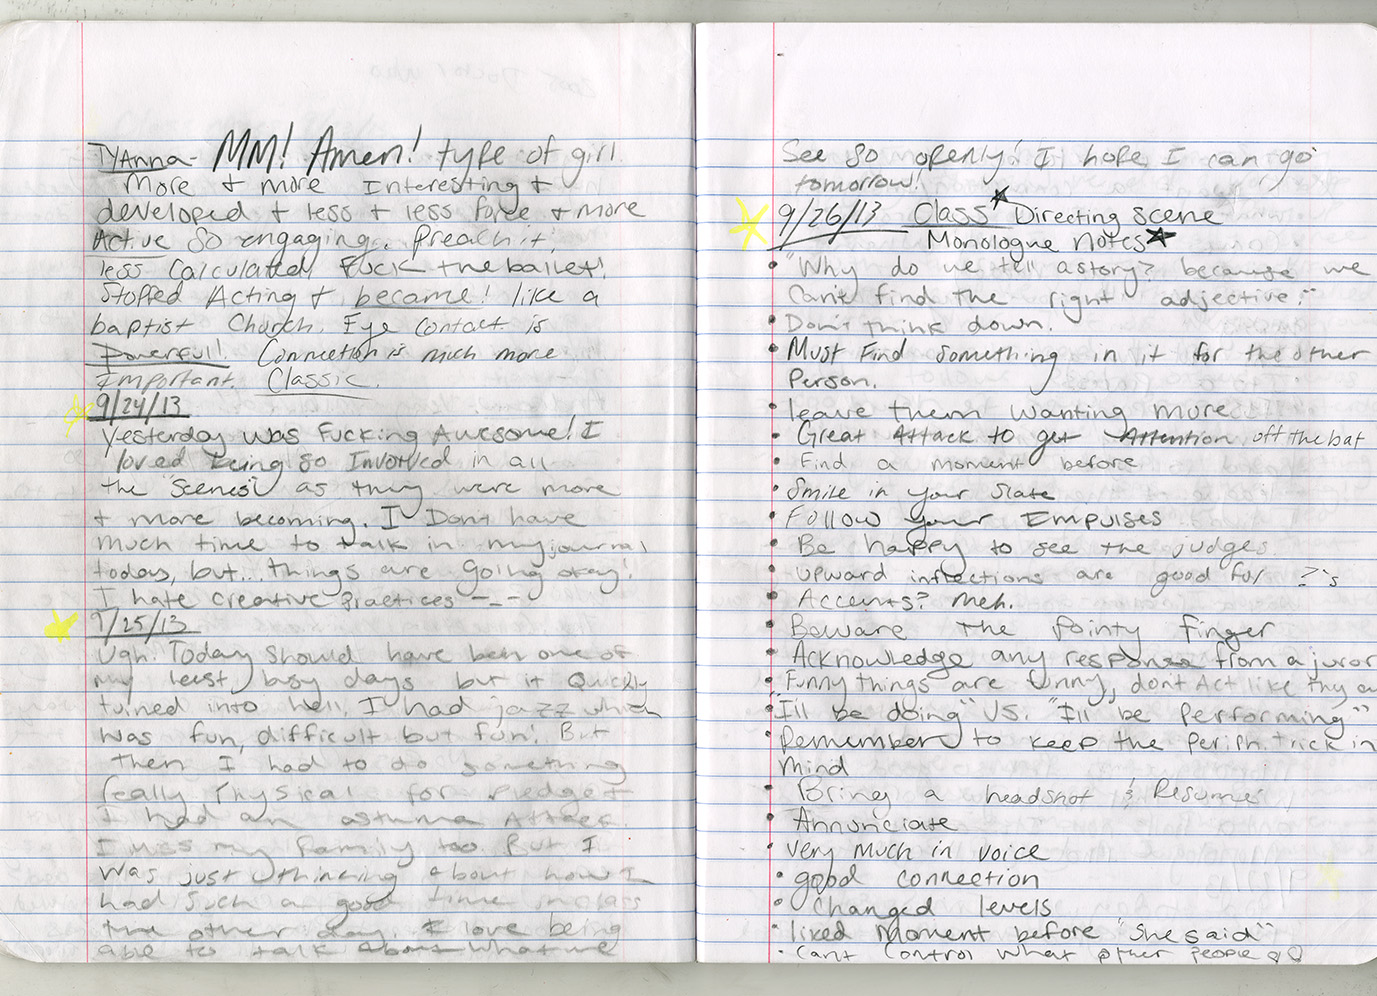 TyAnna- MM! Amen! type of girl
More + more Interesting +
developed + less + less force + more
Active so engaging. Preach it!
less Calculated Fuck the ballet!
Stopped Acting + became! like a
baptist Church. Eye Contact is
Powerful! Connection is much more
Important. Classic.
9/24/13
Yesterday was Fucking Awesome! I
loved being so Involved in all
the "scenes" as they were more
+ more becoming. I Don't have
much time to talk in my journal
today, but... things are going okay!
I hate Creative Practices -_-
9/25/13
Ugh. Today should have been one of
my least busy days but it Quickly
turned into hell. I had jazz which
was fun, difficult but fun! But
then I had to do something
really Physical for Pledge +
I had an asthma Attack.
I miss my family too. But I
was just thinking about how I
had such a good time in class
the other day. I love being
able to talk about what we
See so openly! I hope I can go
tomorrow!
9/26/13 Class Directing scene
Monologue Notes
• "Why do we tell a story? because we
Can't find the right adjective."
• Don't think down.
• Must Find Something in it for the other
Person.
• leave them wanting more
• Great Attack to get Attention off the bat
• Find a moment before
• Smile in your Slate
• Follow your Empulses
• Be happy to see the judges.
• upward inflections are good for ?'s
• Accents? meh.
• Beware the pointy finger
• Acknowledge any response from a juror
• Funny things are funny, don't Act like they a
• "I'll be doing" VS. "I'll be Performing"
• Remember to keep the Periph. trick in
Mind
• Bring a headshot & Resume.
• Annunciate
• very Much in voice
• good connection
• Changed levels
• liked Moment before "She said"
• Can't Control what other people